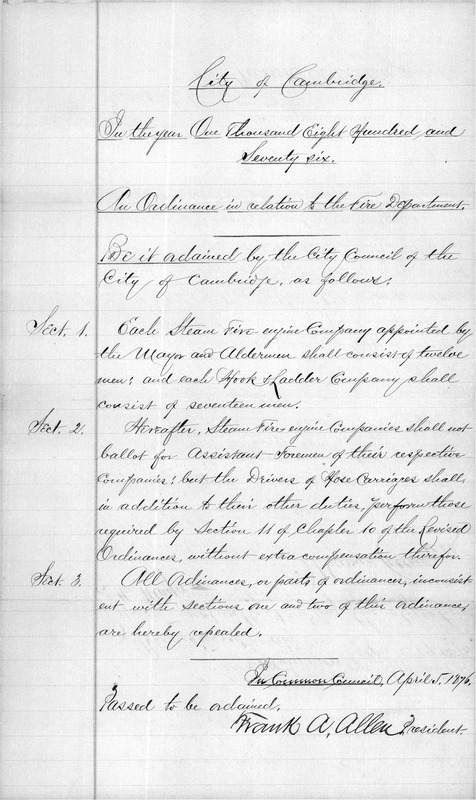 City of Cambridge.
In the year One Thousand Eight Hundred and
Seventy six.
An Ordinance in relation to the Fire Department.
Be it ordained by the City Council of the
City of Cambridge, as follows:
Sect. 1. Each Steam Fire engine Company appointed by
the Mayor and Aldermen shall consist of twelve
men; and each Hook & Ladder Company shall
consist of seventeen men.
Sect. 2. Hereafter, Steam Fire engine Companies shall not
ballot for Assistant Foremen of their respective
Companies; but the Drivers of Hose Carriages shall,
in addition to their other duties, perform those
required by Section 11 of Chapter 10 of the Revised
Ordinances, without extra compensation therefor.
Sect. 3. All Ordinances, or parts of ordinances, inconsist
ent with sections one and two of this ordinance,
are hereby repealed.
In Common Council, April 5, 1876.
Passed to be ordained.
Frank A. Allen President.